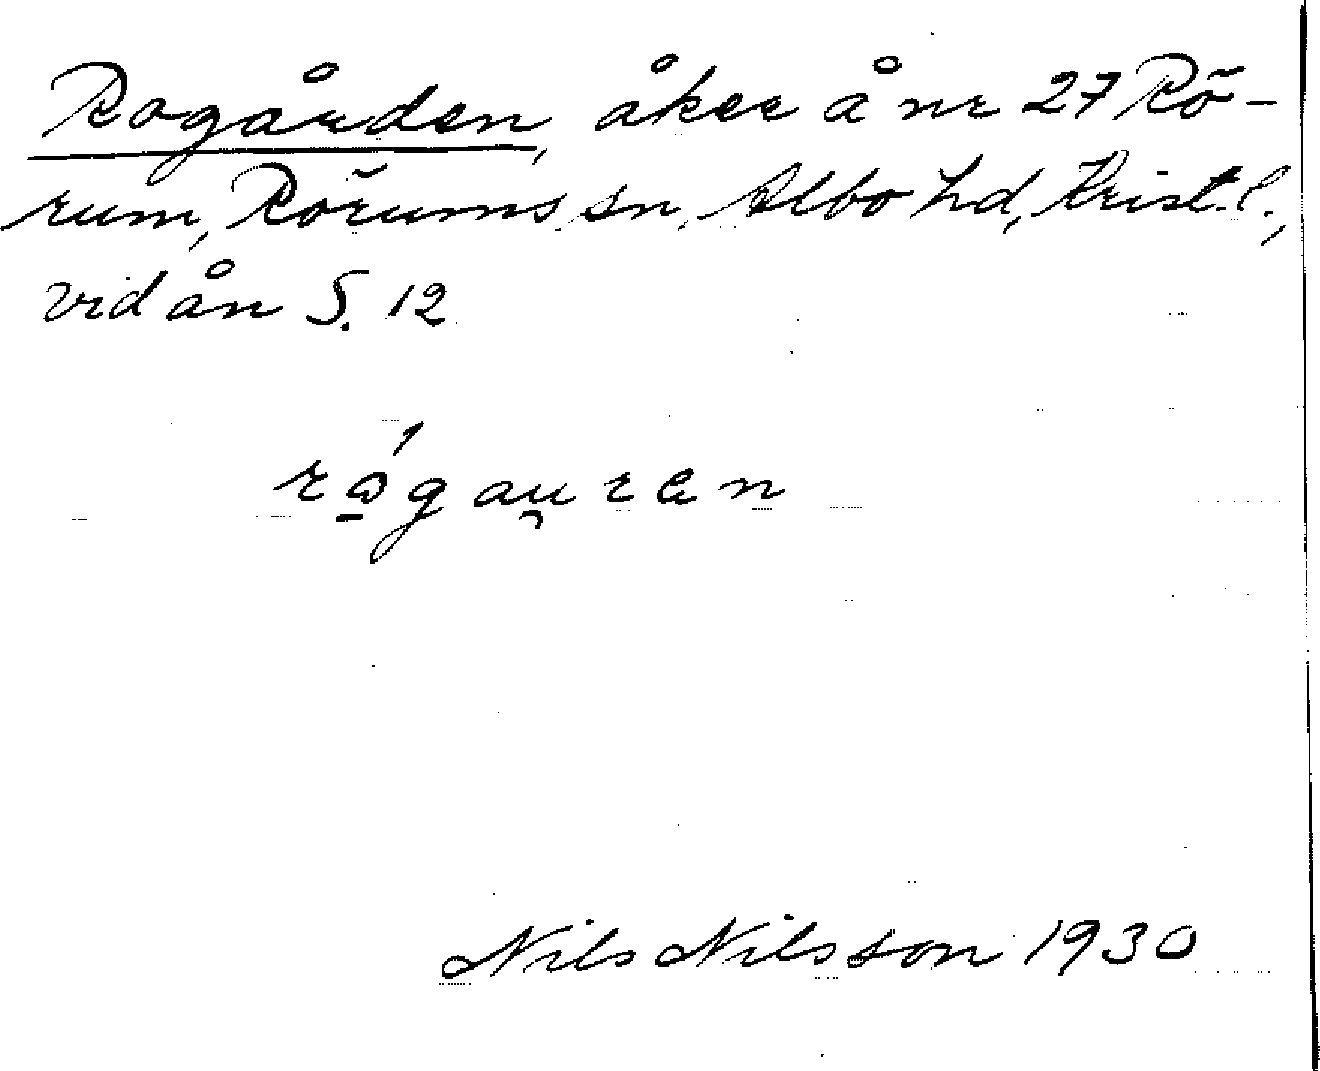 Rogården, åker å nr 27 Rö-
rum, Rörums sn, Albo hd, Krist. l.,
vid ån S. 12
Nils Nilsson 1930